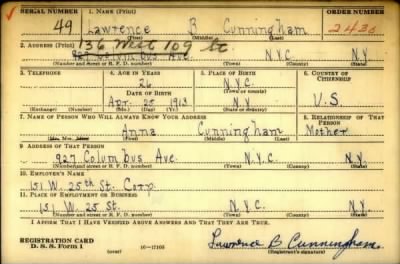 SERIAL NUMBER 1. NAME (Print) ORDER NUMBER
49 Lawrence B Cunningham 2430
(First) (Middle) (Last)
2. ADDRESS (Print) 136 West 109 St.
927 Columbus Ave. N.Y.C. N.Y.
(Number and street or R. F. D. number) (Town) (County) (State)
3. TELEPHONE 4. AGE IN YEARS 5. PLACE OF BIRTH 6. COUNTRY OF CITIZENSHIP
26 N.Y.C.
DATE OF BIRTH (Town or county)
Apr. 25 1913 N.Y. U.S.
(Exchange) (Number) (Mo.) (Day) (Yr.) (State or country)
7. NAME OF PERSON WHO WILL ALWAYS KNOW YOUR ADDRESS 8. RELATIONSHIP OF THAT PERSON
Anna Cunningham Mother
(Mr., Mrs., Miss) (First) (Middle) (Last)
9. ADDRESS OF THAT PERSON
927 Columbus Ave. N.Y.C. N.Y.
(Number and street or R. F. D. number) (Town) (County) (State)
10. EMPLOYER'S NAME
151 W. 25th St. Corp.
11. PLACE OF EMPLOYMENT OR BUSINESS
151 W. 25 St. N.Y.C. N.Y.
(Number and street or R. F. D. number) (Town) (County) (State)
I AFFIRM THAT I HAVE VERIFIED ABOVE ANSWERS AND THAT THEY ARE TRUE.
REGISTRATION CARD
D. S. S. Form 1 (over) 16—17105 Lawrence B Cunningham
(Registrant's signature)